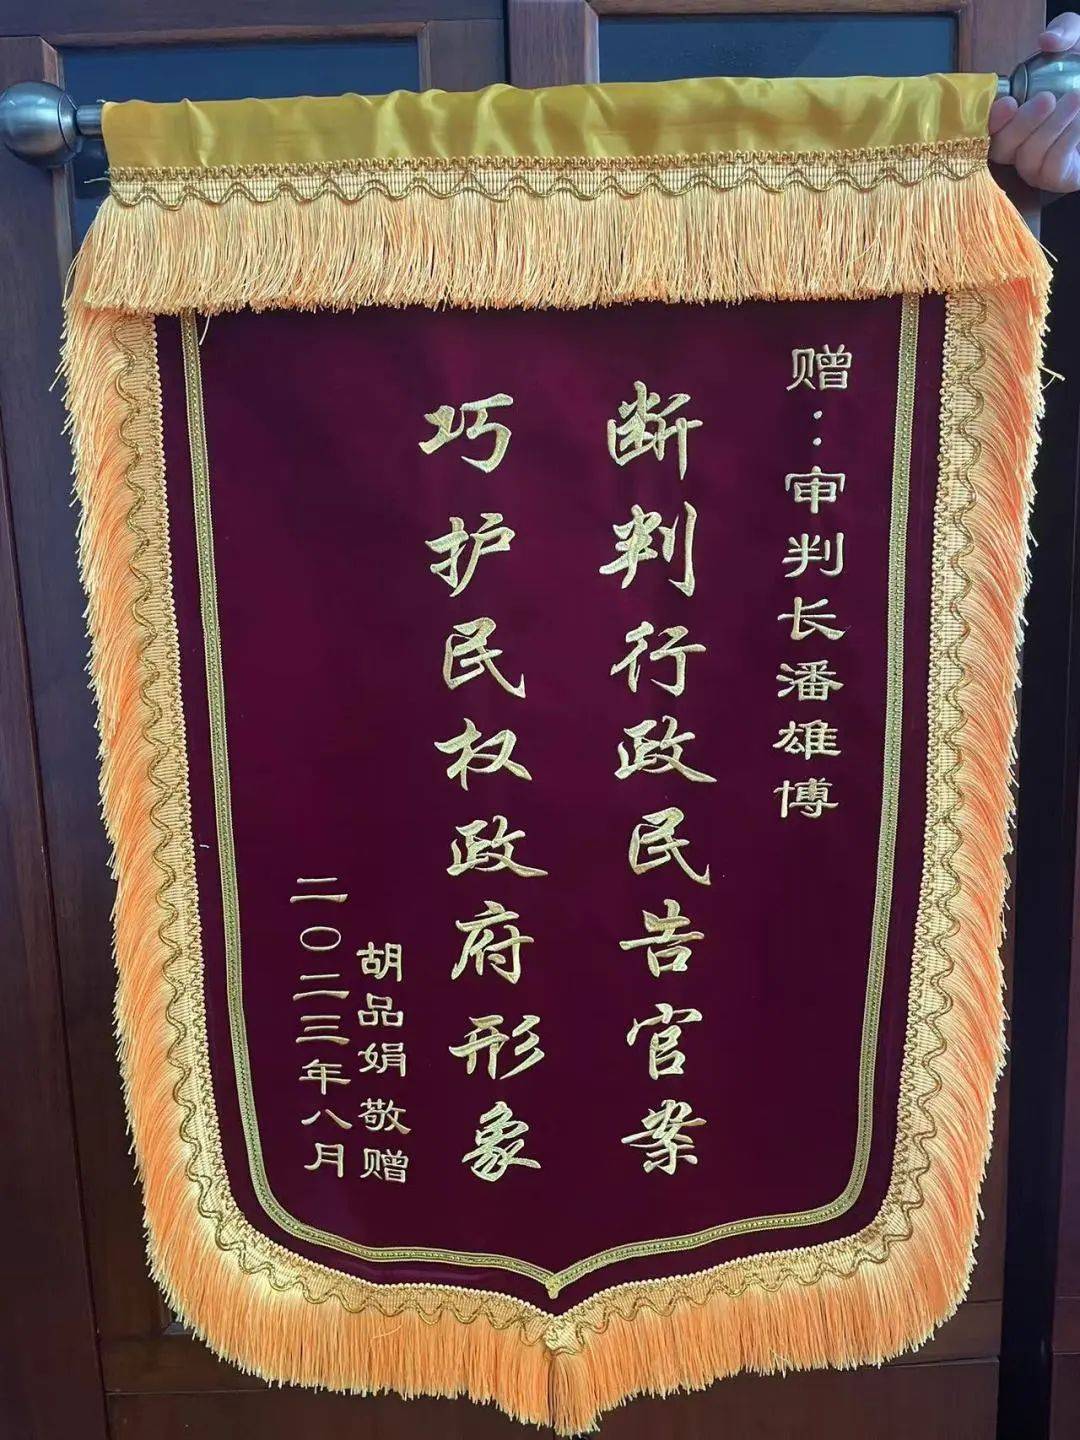 赠：审判长潘雄博
断判行政民告官案
巧护民权政府形象
胡品娟敬赠
二〇二三年八月